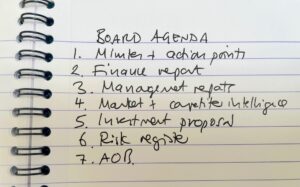 BOARD AGENDA
1. Minutes + action points
2. Finance report
3. Management reports
4. Market + competitor intelligence
5. Investment proposal
6. Risk register
7. AOB